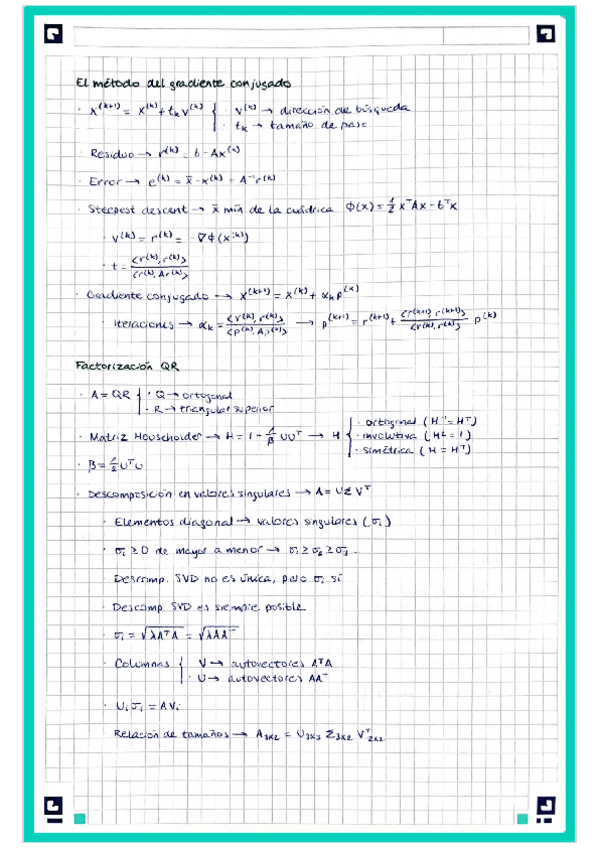 El método del gradiente conjugado
· x^(k+1) = x^(k) + t_k v^(k) { · v^(k) → dirección de búsqueda
· t_k → tamaño de paso
· Residuo → r^(k) = b - Ax^(k)
· Error → e^(k) = x̄ - x^(k) = A⁻¹r^(k)
· Steepest descent → x̄ mín de la cuádrica ϕ(x) = 1/2 x^T Ax - b^T x
· v^(k) = r^(k) = -∇ϕ(x^(k))
· t = <r^(k), r^(k)> / <r^(k), Ar^(k)>
· Gradiente conjugado → x^(k+1) = x^(k) + α_k p^(k)
· Iteraciones → α_k = <r^(k), r^(k)> / <p^(k), Ap^(k)> → p^(k+1) = r^(k+1) + <r^(k+1), r^(k+1)> / <r^(k), r^(k)> p^(k)
Factorización QR
· A = QR { · Q → ortogonal
· R → triangular superior
· Matriz Householder → H = I - 1/β UU^T → H { · ortogonal (H⁻¹ = H^T)
· involutiva (H² = I)
· simétrica (H = H^T)
· β = 1/2 U^T U
· Descomposición en valores singulares → A = UΣV^T
· Elementos diagonal → valores singulares (σi)
· σi ≥ 0 de mayor a menor → σ1 ≥ σ2 ≥ σ3 ...
· Descomp. SVD no es única, pero σi sí
· Descomp. SVD es siempre posible
· σi = √λA^T A = √λAA^T
· Columnas { V → autovectores A^T A
· U → autovectores AA^T
· Ui σi = AVi
Relación de tamaños → A3x2 = U3x3 Σ3x2 V^T 2x2